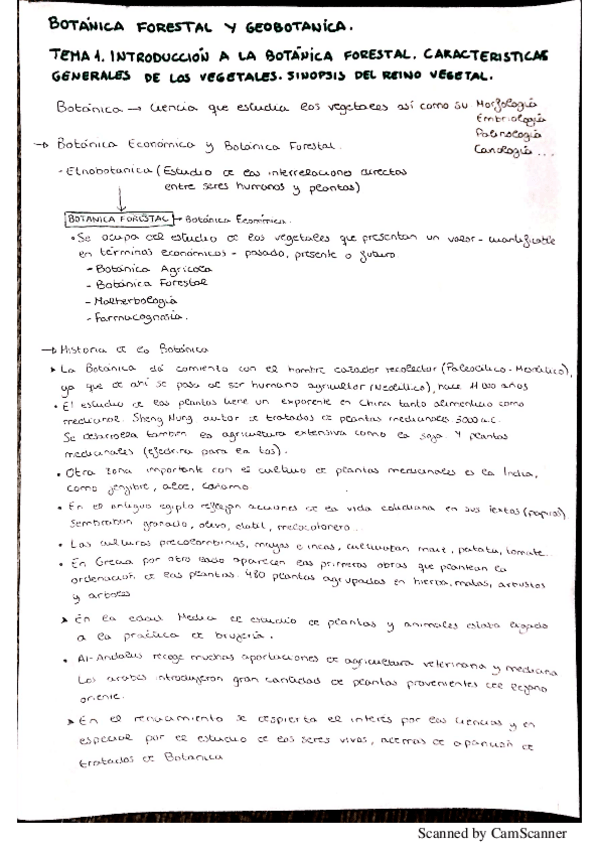 BOTÁNICA FORESTAL Y GEOBOTANICA.
TEMA 1. INTRODUCCIÓN A LA BOTÁNICA FORESTAL. CARACTERISTICAS
GENERALES DE LOS VEGETALES. SINOPSIS DEL REINO VEGETAL.
Botánica → Ciencia que estudia los vegetales así como su Morfología
Embriología
Palinología
Cariología ...
→ Botánica Económica y Botánica Forestal.
- Etnobotanica (Estudio de las interrelaciones directas
entre seres humanos y plantas)
BOTANICA FORESTAL → Botánica Económica.
• Se ocupa del estudio de los vegetales que presentan un valor - cuantificable
en términos económicos - pasado, presente o futuro
- Botánica Agrícola
- Botánica Forestal
- Malherbología
- Farmacognosia.
→ Historia de la Botánica
La Botánica dá comienzo con el hombre cazador recolector (Paleolítico - Mesolítico),
ya que de ahí se pasa al ser humano agricultor (Neolítico), hace 11 000 años
• El estudio de las plantas tiene un exponente en China tanto alimenticio como
medicinal. Sheng Nung autor de tratados de plantas medicinales 3000 a.C.
Se desarrolla también la agricultura extensiva como la soja y plantas
medicinales (efedrina para la tos).
• Otra zona importante con el cultivo de plantas medicinales es la India,
como jengibre, aloe, cáñamo
• En el antiguo egipto reflejan acciones de la vida cotidiana en sus textos (papiros).
Sembraban granado, olivo, datil, melocotonero.
• Las culturas precolombinas, mayas e incas, cultivaban maiz, patata, tomate...
• En Grecia por otro lado aparecen las primeras obras que plantean la
ordenación de las plantas. 480 plantas agrupadas en hierba, matas, arbustos
y arboles
En la edad Media el estudio de plantas y animales estaba ligado
a la practica de brujería.
• Al-Andalus recoge muchas aportaciones de agricultura veterinaria y medicina
Los arabes introdujeron gran cantidad de plantas provenientes del lejano
oriente.
En el renacimiento se despierta el interés por las ciencias y en
especial por el estudio de los seres vivos, además de aparición de
tratados de Botanica
Scanned by CamScanner